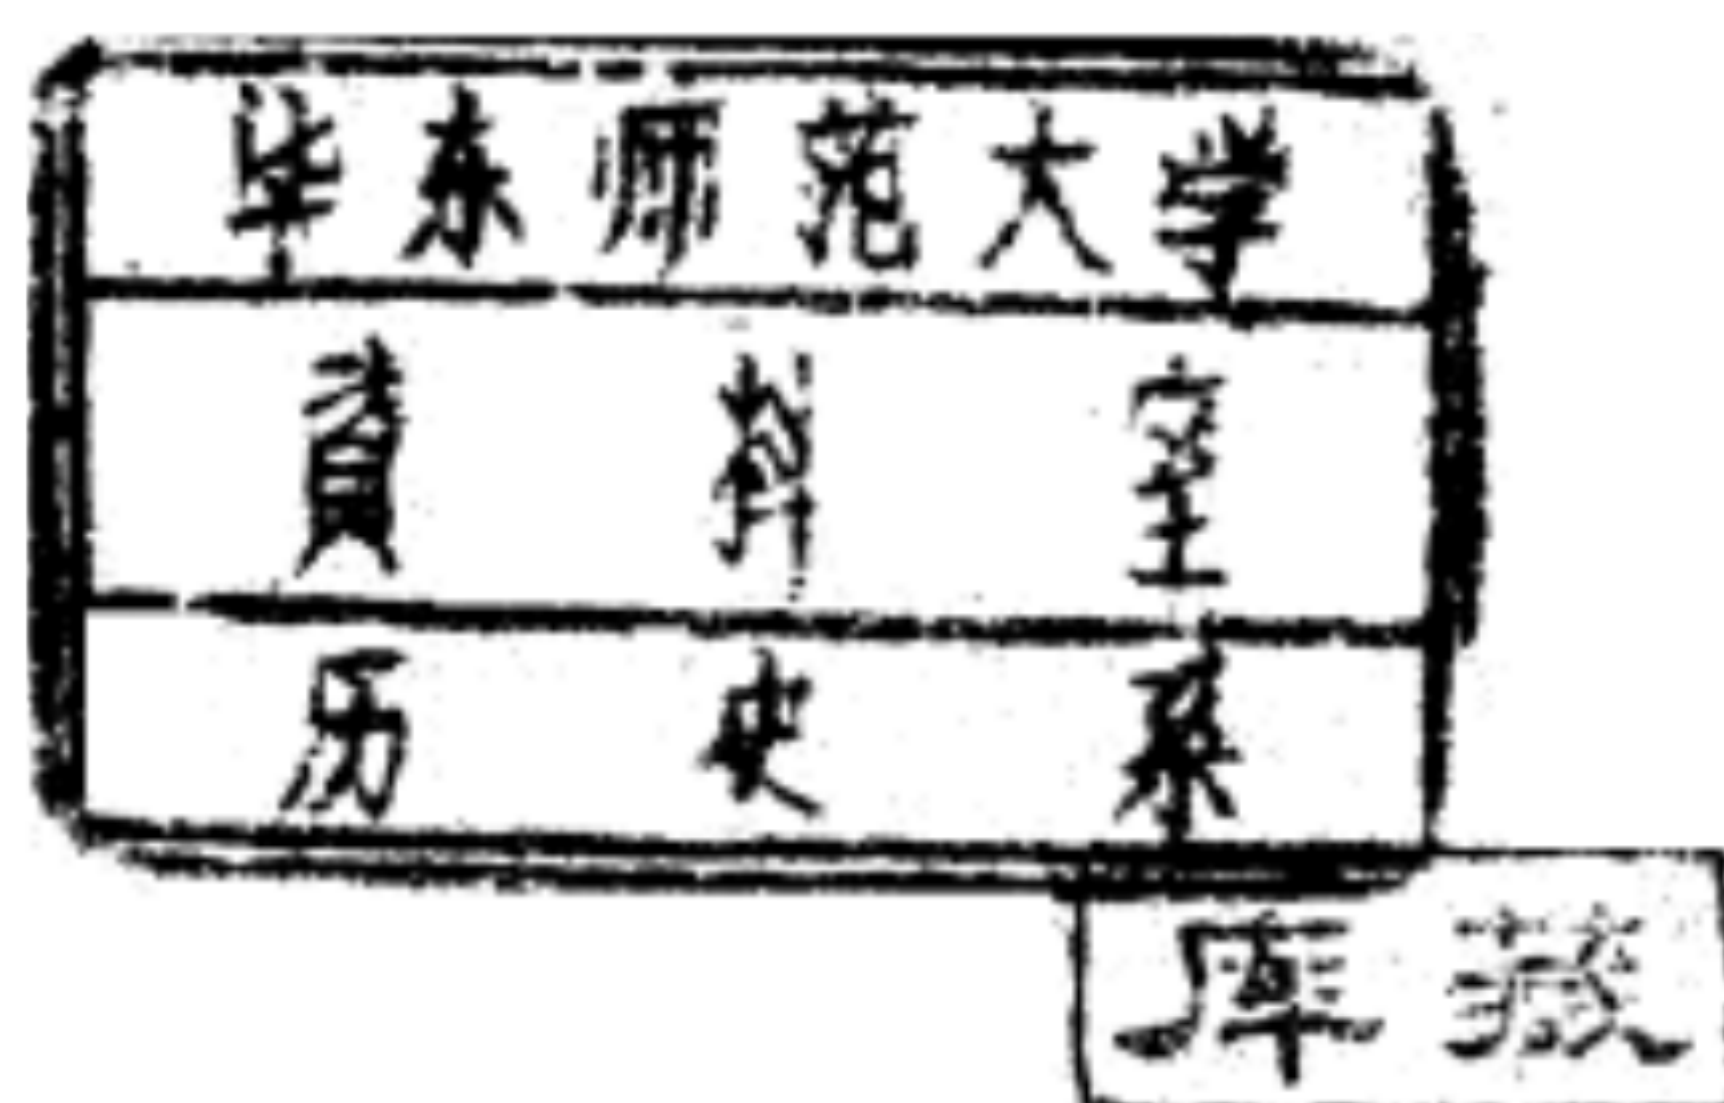 华东师范大学
資料室
历史系
庫藏